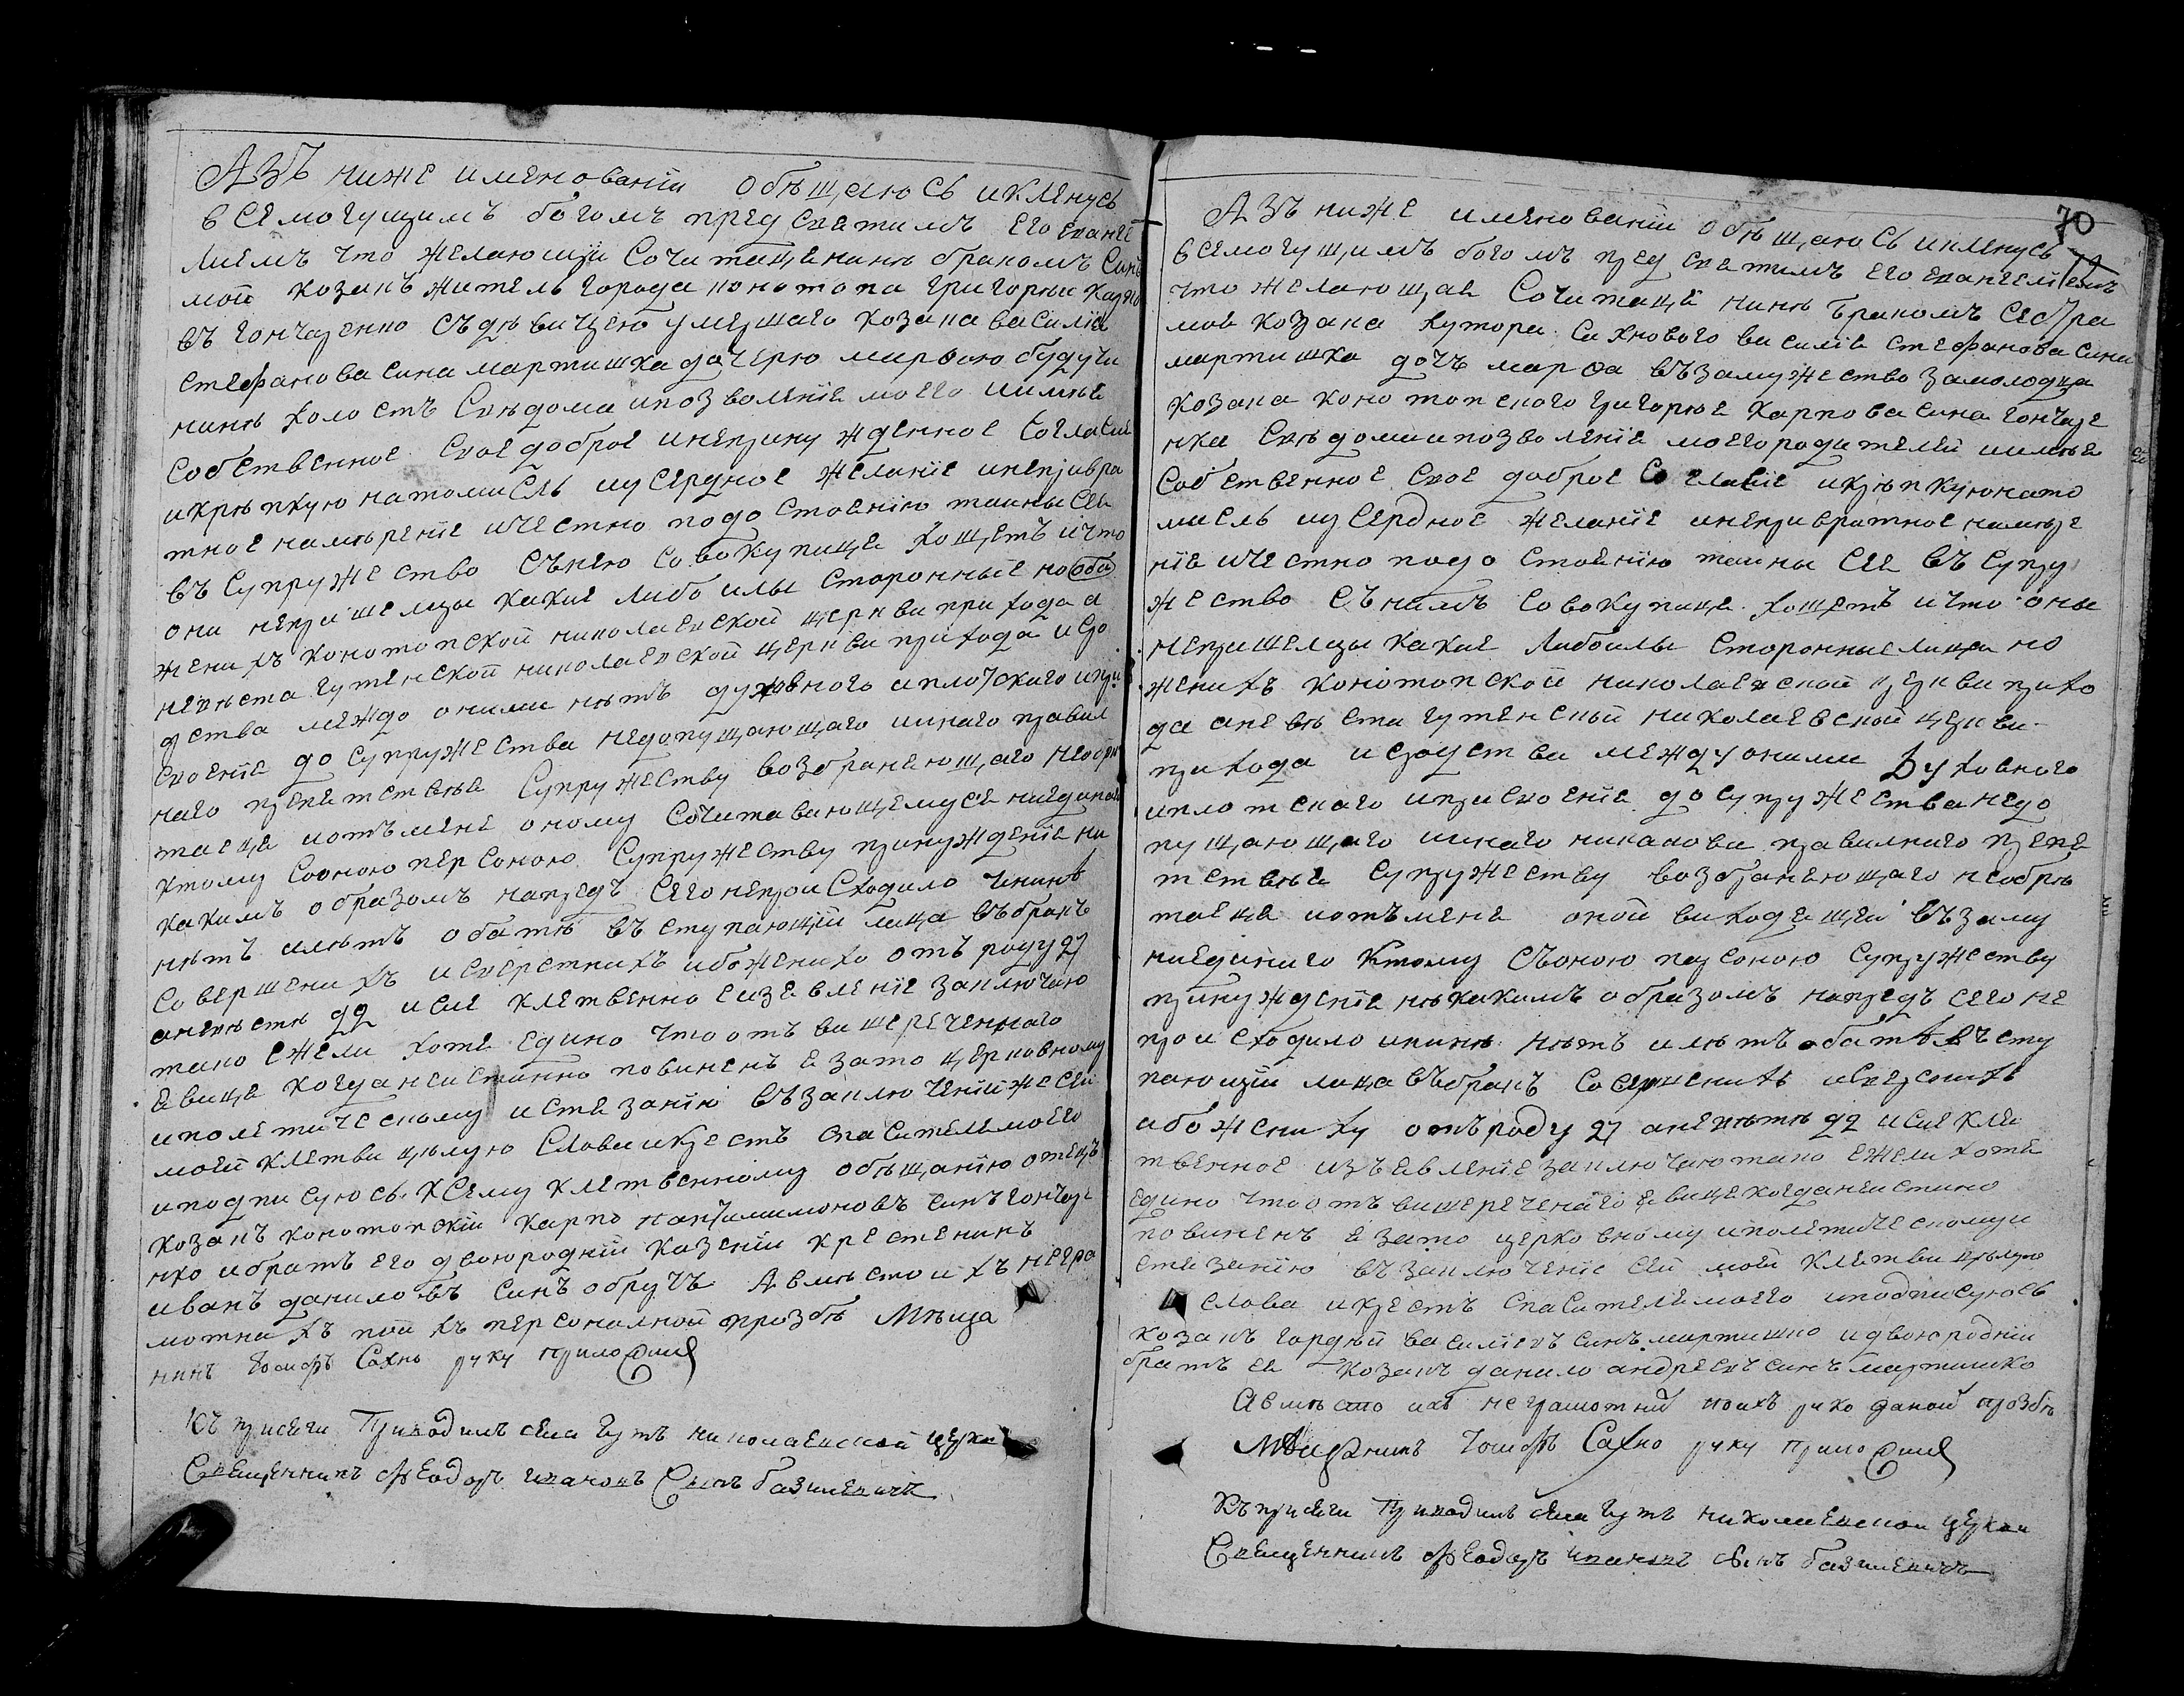 Азъ ниже именованїи обѣщаюсь иклянусь
всемогущимъ богомъ пред святимъ его еванге
лиемъ что желающїи Сочитаця нинѣ бракомъ Синъ
мой козакъ житель города конотопа григорїи карпо
въ гончаренко съдѣвицею умершаго козака василия
стефанова сина мартишка дочерю марѳою будучи
нинѣ холостъ Свѣдома ипозволенїя моего иимѣя
собственное свое доброе инепринужденное Согласие
икрѣпкую натомисль иусердное желанїе инепривра
тное намѣренїе ичестно подостоянїю таины сея
въ супружество сънею совокупиця хощетъ ичто
они непришелцы какие либо илы сторонныя но оба
женихъ конотопской николаевской церкви прихода а
невѣста гутянской николаевской церкви прихода исро
дства междо оними нѣтъ духовного иплотского ипри
своения до супружества недопущающаго иинаго правил
наго препятствия Супружеству возбраняющаго необрѣ
таеця иотъ мене оному Сочитавающемуся ниединого
ктому Соною персоною Супружеству принужденїя ни
какимъ образомъ напредъ Сего непроисходило ининѣ
нѣтъ илѣтъ обатѣ въступающїи лица въбракъ
Совершенихъ исверстнихъ ибо жениху отъ роду 27
аневѣстѣ 22 исие клятвенно еизявленїе заключаю
тако ежели хотя едино что отъ вишереченнаго
явиця когда неистинно повиненъ я зато церковному
иполѣтическому истязанїю възаключенїи же сей
моей клятви цѣлую Слова икрестъ спасителя моего
иподписуюсь. ксему клятвенному обѣщанїю отецъ
козакъ конотопскїи карпо пантилимоновъ синъ гончаре
нко ибратъ его двоюроднїи казенїи крестянинъ
иванъ даниловъ синъ обручъ Авмѣсто ихъ негра
мотних поихъ персоналной прозбѣ Мѣща
нинъ Іосифъ Сахно руку приложил
Къ присяги Приводилъ села гутъ николаевской церкви
Священникъ Ѳеодоръ ивановъ Синъ базилевичъ
70
Азъ ниже именованїи обѣщаюсь иклянусь
всемогущимъ богомъ пред святимъ его евангелїемъ
что желающая Сочитаця нинѣ Бракомъ Сестра
моя козака хутора Сахнового василия стефанова сина
мартишка дочъ марѳа възамужество замолодца
козака конотопского григория карпова сина гончаре
нка Свѣдоми ипозволенїя моего родителей иимѣя
Собственное свое доброе Согласїе икрѣпкую нато
мисль иусердное желанїе инепривратное намѣре
нїя ичестно подостоянїю таины Сея въ супру
жество съ нимъ совокупиця хощетъ ичто они
непришелцы какие либо илы сторонные лица но
женихъ конотопской николаевской церкви прихо
да аневѣста гутянской николаевской церкви
прихода исродства между оними Духовного
иплотского иприсвоенїя до супружества недо
пущающаго иинаго никакова правилнаго препя
тствия Супружеству возбраняющаго необрѣ
таеця иотъ мене оной виходящей възаму
ниединаго ктому Съоною персоною супружеству
принужденїя нѣкакимъ образомъ напредъ сего не
происходило ининѣ нѣтъ илѣтъ обатѣ въсту
пающїи лица въбракъ совершенихъ исверснихъ
ибо жениху отъ роду 27 аневѣстѣ 22 исие кля
твенное изъявленїе заключаю тако ежели хотя
едино что отъ вишереченаго явиця когда неистино
повиненъ я зато церковному иполѣтическому и
стязанїю възаключенїе сей моей клятви цѣлую
слова икрестъ спасителя моего иподписуюсь
козакъ гордѣй василиевъ синъ мартишко идвоюроднїи
братъ ея козакъ данило андреевъ синъ мартишко
Авмѣсто ихъ неграмотних поихъ руко даной прозбѣ
Мѣщанинъ Іосифъ Сахно руку приложил
Къ присяги Приводилъ села гутъ николаевской церкви
Священникъ Ѳеодоръ ивановъ синъ базилевичъ